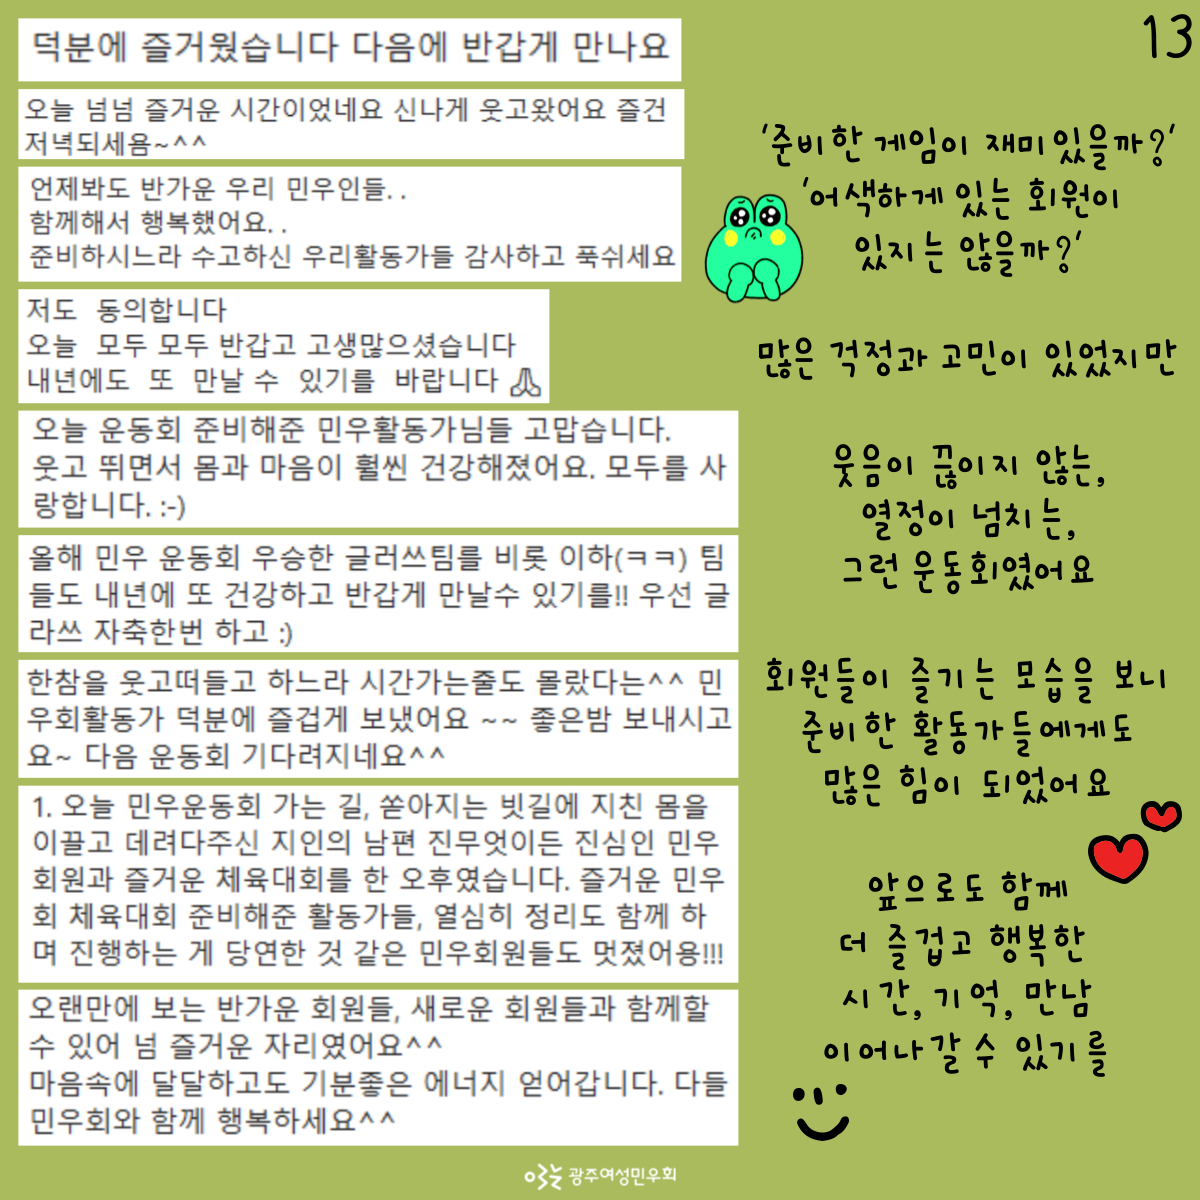 13
덕분에 즐거웠습니다 다음에 반갑게 만나요
오늘 넘넘 즐거운 시간이었네요 신나게 웃고왔어요 즐건
저녁되세욤~^^
언제봐도 반가운 우리 민우인들. .
함께해서 행복했어요. .
준비하시느라 수고하신 우리활동가들 감사하고 푹쉬세요
저도 동의합니다
오늘 모두 모두 반갑고 고생많으셨습니다
내년에도 또 만날 수 있기를 바랍니다 🙏
오늘 운동회 준비해준 민우활동가님들 고맙습니다.
웃고 뛰면서 몸과 마음이 훨씬 건강해졌어요. 모두를 사
랑합니다. :-)
올해 민우 운동회 우승한 글러쓰팀를 비롯 이하(ㅋㅋ) 팀
들도 내년에 또 건강하고 반갑게 만날수 있기를!! 우선 글
라쓰 자축한번 하고 :)
한참을 웃고떠들고 하느라 시간가는줄도 몰랐다는^^ 민
우회활동가 덕분에 즐겁게 보냈어요 ~~ 좋은밤 보내시고
요~ 다음 운동회 기다려지네요^^
1. 오늘 민우운동회 가는 길, 쏟아지는 빗길에 지친 몸을
이끌고 데려다주신 지인의 남편 진무엇이든 진심인 민우
회원과 즐거운 체육대회를 한 오후였습니다. 즐거운 민우
회 체육대회 준비해준 활동가들, 열심히 정리도 함께 하
며 진행하는 게 당연한 것 같은 민우회원들도 멋졌어용!!!
오랜만에 보는 반가운 회원들, 새로운 회원들과 함께할
수 있어 넘 즐거운 자리였어요^^
마음속에 달달하고도 기분좋은 에너지 얻어갑니다. 다들
민우회와 함께 행복하세요^^
'준비한 게임이 재미있을까?'
'어색하게 있는 회원이
있지는 않을까?'
많은 걱정과 고민이 있었지만
웃음이 끊이지 않는,
열정이 넘치는,
그런 운동회였어요
회원들이 즐기는 모습을 보니
준비한 활동가들에게도
많은 힘이 되었어요
앞으로도 함께
더 즐겁고 행복한
시간, 기억, 만남
이어나갈 수 있기를
광주여성민우회